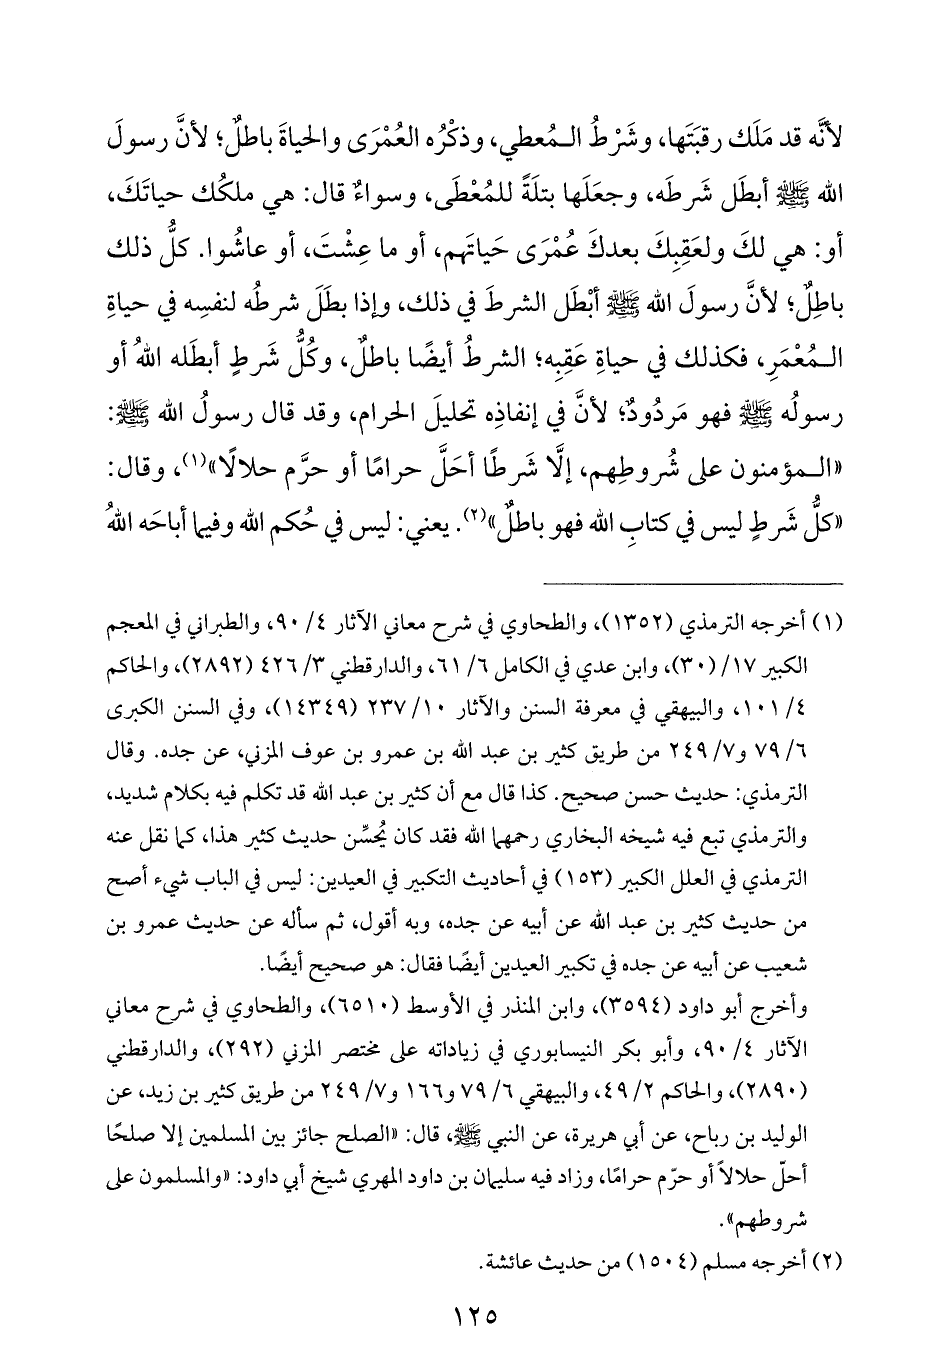 لأنَّه قد مَلَك رقبَتَها، وشَرْطُ الـمُعطي، وذكْرُه العُمْرَى والحياةَ باطلٌ؛ لأنَّ رسولَ
الله ﷺ أبطَل شَرطَه، وجعَلَها بتلَةً للمُعْطَى، وسواءٌ قال: هي ملكُك حياتَكَ،
أو: هي لكَ ولعَقِبِكَ بعدكَ عُمْرَى حَياتَهم، أو ما عِشْتَ، أو عاشُوا. كلُّ ذلك
باطِلٌ؛ لأنَّ رسولَ الله ﷺ أبْطَل الشرطَ في ذلك، وإذا بطَلَ شرطُه لنفسِه في حياةِ
الـمُعْمَرِ، فكذلك في حياةِ عَقِبِه؛ الشرطُ أيضًا باطلٌ، وكُلُّ شَرطٍ أبطَله اللهُ أو
رسولُه ﷺ فهو مَردُودٌ؛ لأنَّ في إنفاذِه تحليلَ الحرام، وقد قال رسولُ الله ﷺ:
«الـمؤمنون على شُروطِهم، إلَّا شَرطًا أحَلَّ حرامًا أو حرَّم حلالًا»(١)، وقال:
«كلُّ شَرطٍ ليس في كتابِ الله فهو باطلٌ»(٢). يعني: ليس في حُكم الله وفيما أباحَه اللهُ
(١) أخرجه الترمذي (١٣٥٢)، والطحاوي في شرح معاني الآثار ٤/ ٩٠، والطبراني في المعجم
الكبير ١٧/ (٣٠)، وابن عدي في الكامل ٦/ ٦١، والدارقطني ٣/ ٤٢٦ (٢٨٩٢)، والحاكم
٤/ ١٠١، والبيهقي في معرفة السنن والآثار ١٠/ ٢٣٧ (١٤٣٤٩)، وفي السنن الكبرى
٦/ ٧٩ و٧/ ٢٤٩ من طريق كثير بن عبد الله بن عمرو بن عوف المزني، عن جده. وقال
الترمذي: حديث حسن صحيح. كذا قال مع أن كثير بن عبد الله قد تكلم فيه بكلام شديد،
والترمذي تبع فيه شيخه البخاري رحمهما الله فقد كان يُحسِّن حديث كثير هذا، كما نقل عنه
الترمذي في العلل الكبير (١٥٣) في أحاديث التكبير في العيدين: ليس في الباب شيء أصح
من حديث كثير بن عبد الله عن أبيه عن جده، وبه أقول، ثم سأله عن حديث عمرو بن
شعيب عن أبيه عن جده في تكبير العيدين أيضًا فقال: هو صحيح أيضًا.
وأخرج أبو داود (٣٥٩٤)، وابن المنذر في الأوسط (٦٥١٠)، والطحاوي في شرح معاني
الآثار ٤/ ٩٠، وأبو بكر النيسابوري في زياداته على مختصر المزني (٢٩٢)، والدارقطني
(٢٨٩٠)، والحاكم ٢/ ٤٩، والبيهقي ٦/ ٧٩ و١٦٦ و٧/ ٢٤٩ من طريق كثير بن زيد، عن
الوليد بن رباح، عن أبي هريرة، عن النبي ﷺ، قال: «الصلح جائز بين المسلمين إلا صلحًا
أحلّ حلالاً أو حرّم حرامًا، وزاد فيه سليمان بن داود المهري شيخ أبي داود: «والمسلمون على
شروطهم».
(٢) أخرجه مسلم (١٥٠٤) من حديث عائشة.
١٢٥